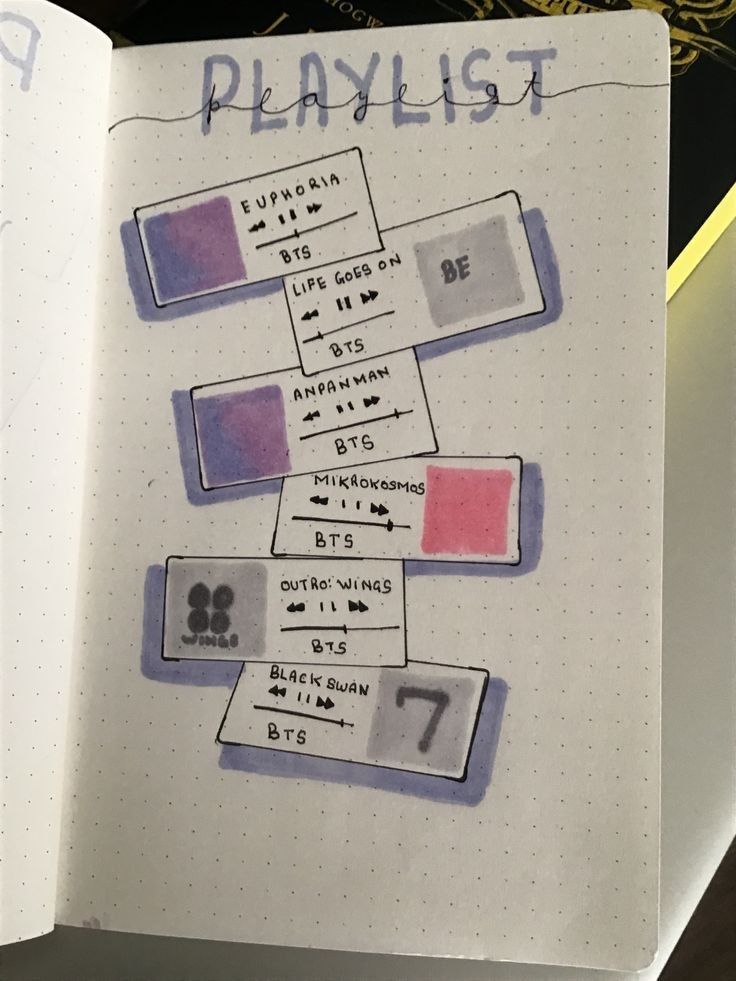 PLAYLIST
playlist
EUPHORIA
BTS
LIFE GOES ON
BTS
BE
ANPANMAN
BTS
MIKROKOSMOS
BTS
OUTRO: WINGS
BTS
WINGS
BLACK SWAN
BTS
7